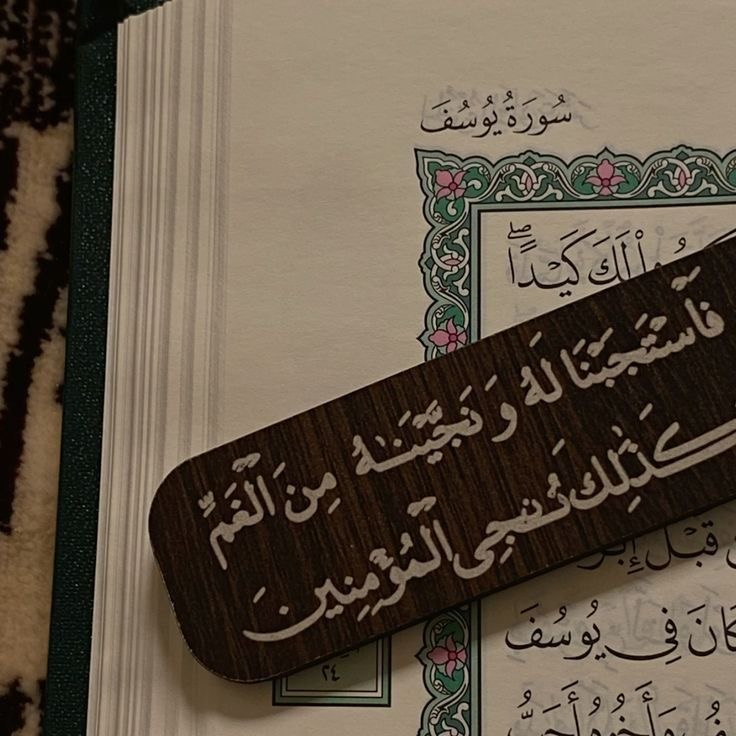 سُورَةُ يُوسُفَ
لَكَ كَيْدًا ۖ
فَاسْتَجَبْنَا لَهُ وَنَجَّيْنَٰهُ مِنَ الْغَمِّ
كَذَٰلِكَ نُنجِي الْمُؤْمِنِينَ
قَبْلُ
كَانَ فِي يُوسُفَ
وَأَخُوهُ أَحَبُّ
٢٤